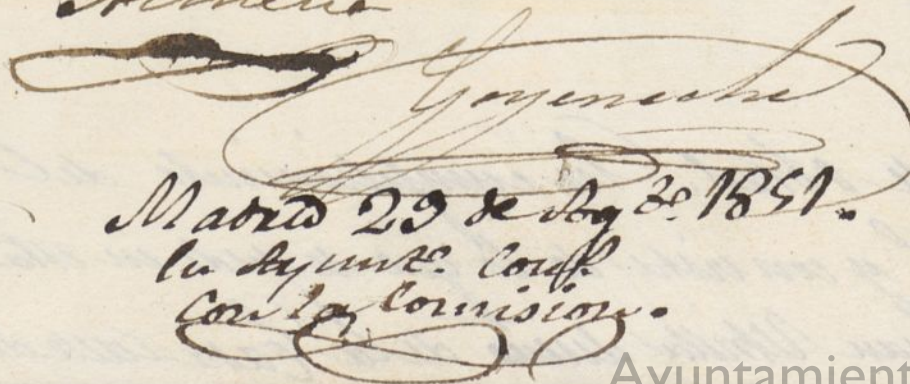 Goyeneche
Madrid 29 de Agto. 1851.
En Ayunto. Conf.
con la Comision.
Ayuntamient